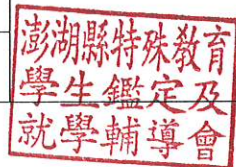 澎湖縣特殊教育
學生鑑定及
就學輔導會